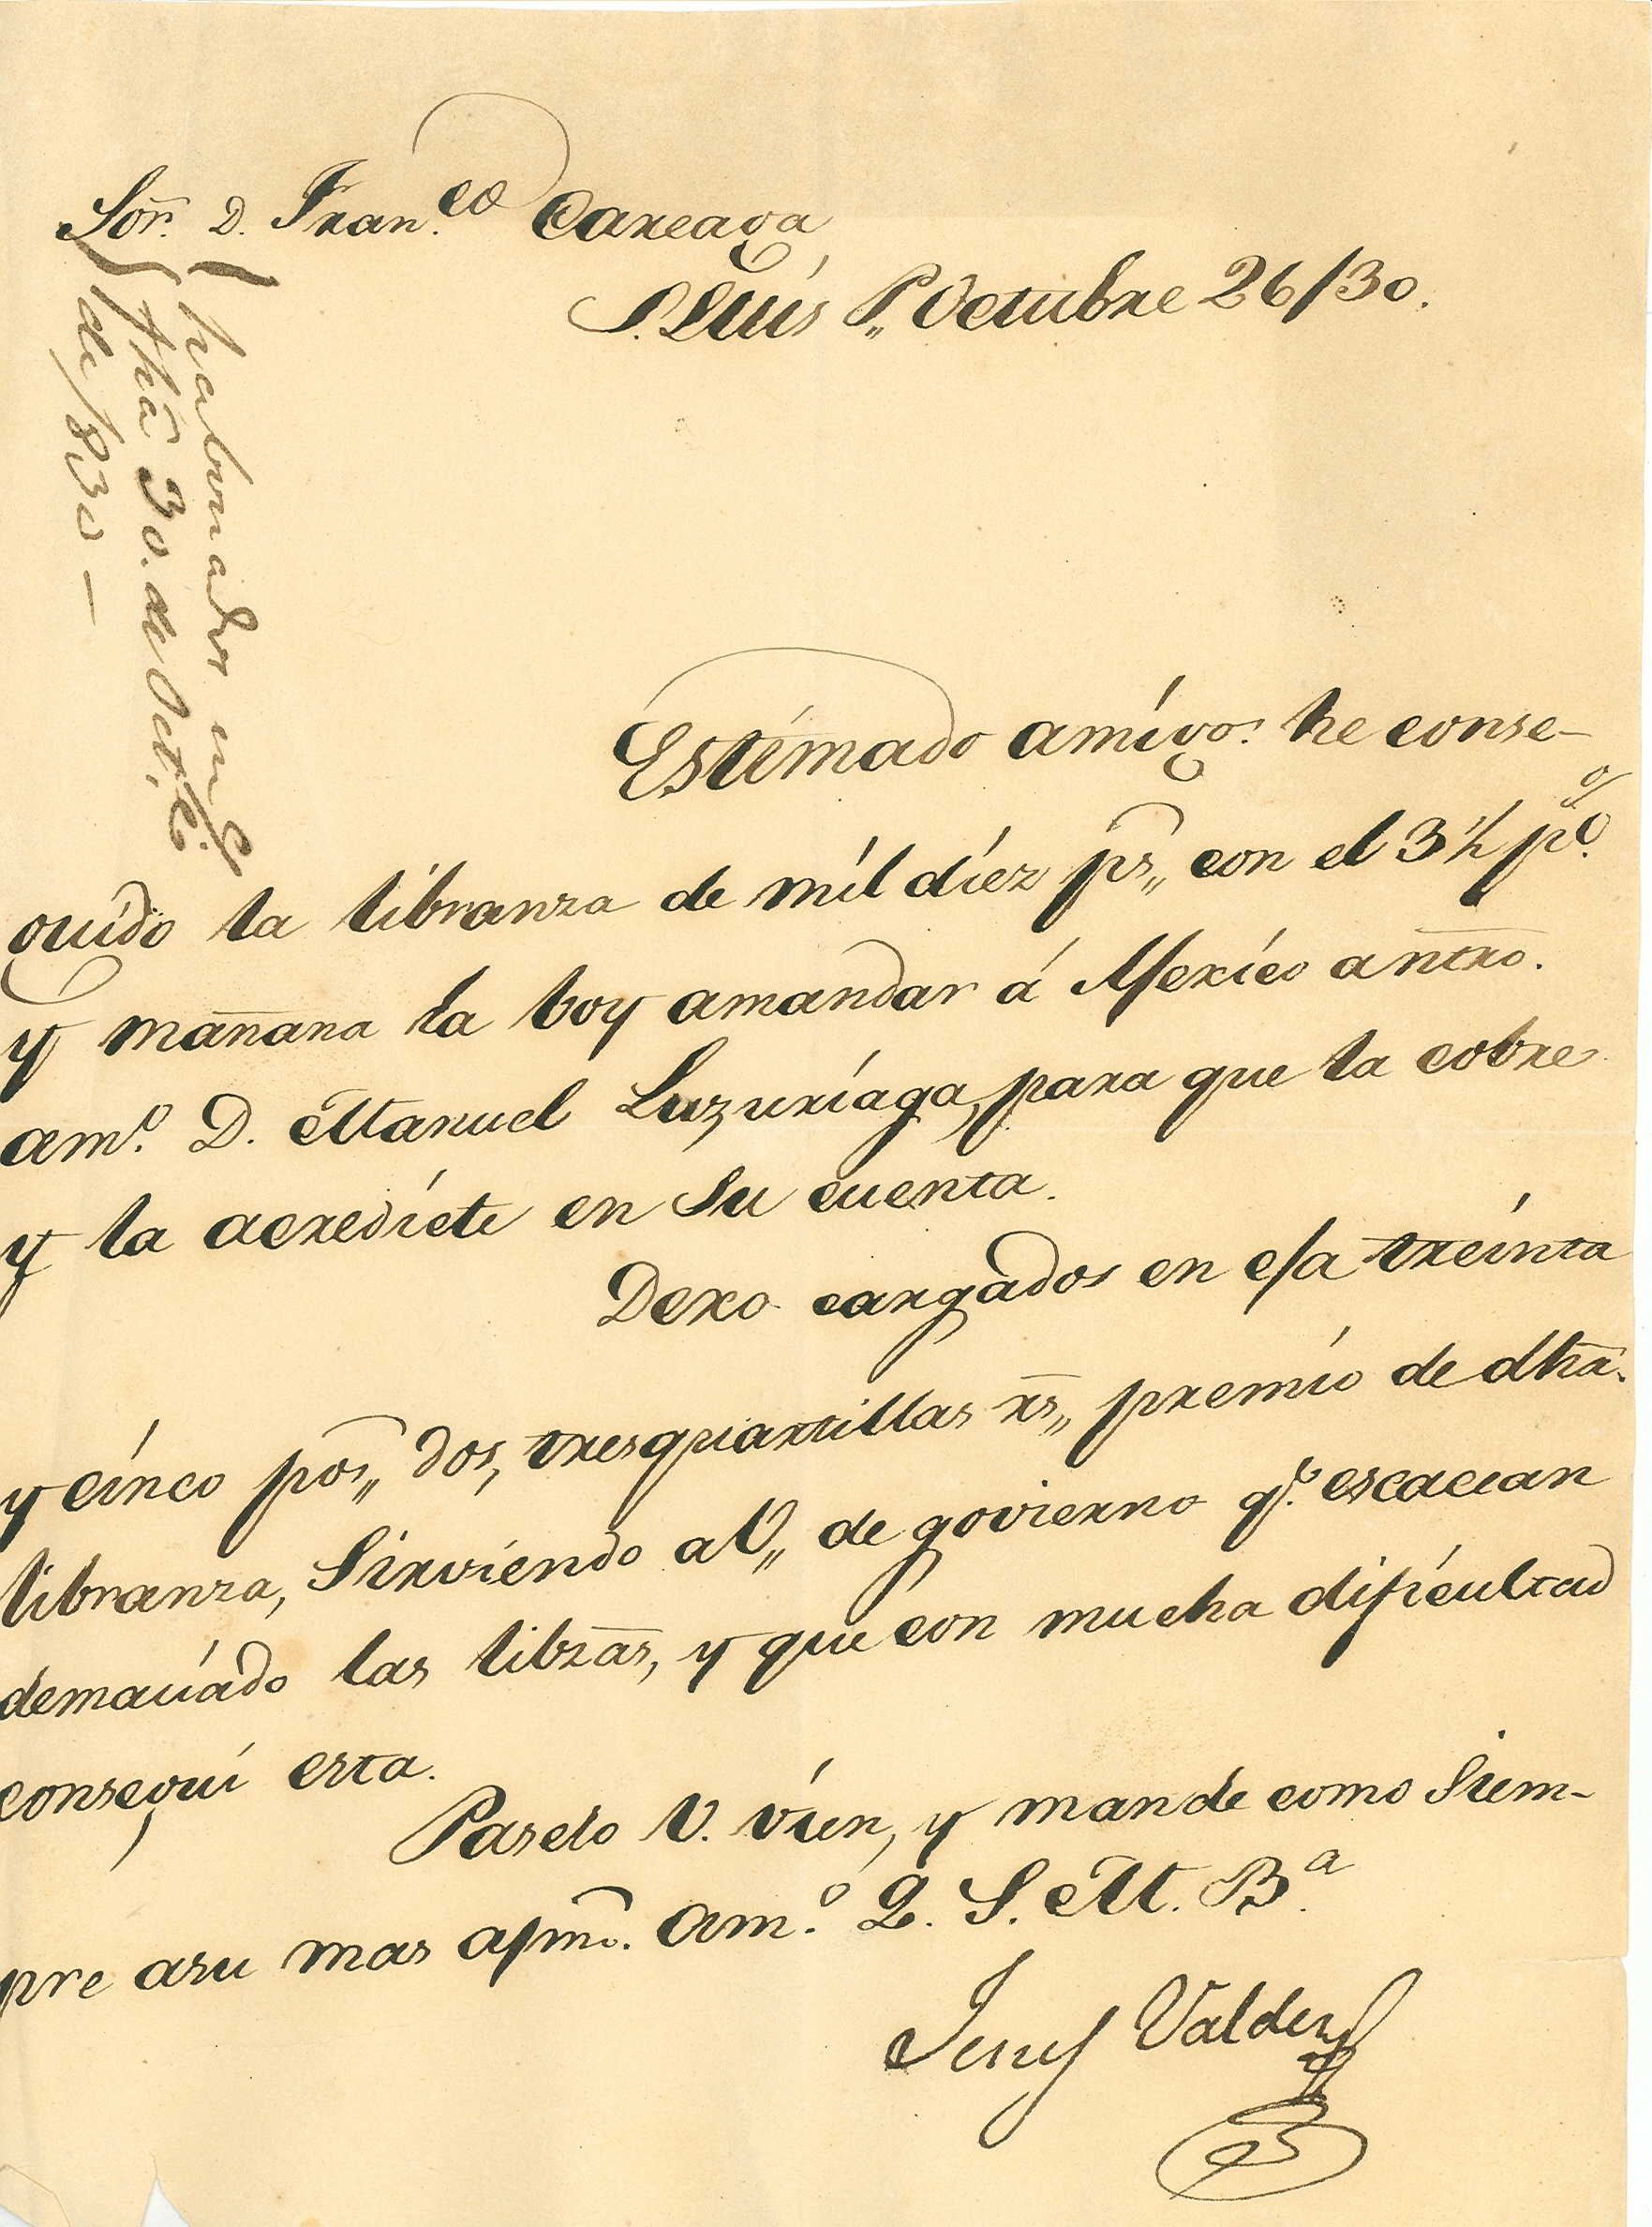 Sor. D. Fran.co Careaga
S. Luis P,, Octubre 26/30.
Estimado amigo: he conse-
guido la libranza de mil diez ps,, con el 3 1/2 p%
y mañana la boy amandar á Mexico a ntro.
am.o D. Manuel Luzuriaga, para que la cobre
y la acredite en su cuenta.
Dexo cargados en esa treinta
y cinco pos,, dos, tresquartillas rs,, premio de dha.
libranza, sirviendo a V,, de govierno q.e escacean
demaciado las libzas, y que con mucha dificultad
consegui esta.
Paselo V. vien, y mande como siem-
pre asu mas afmo. am.o Q. S. M. B.a
Jesus Valdes
habonados en
fha 30. de Oct.e
de /830 –